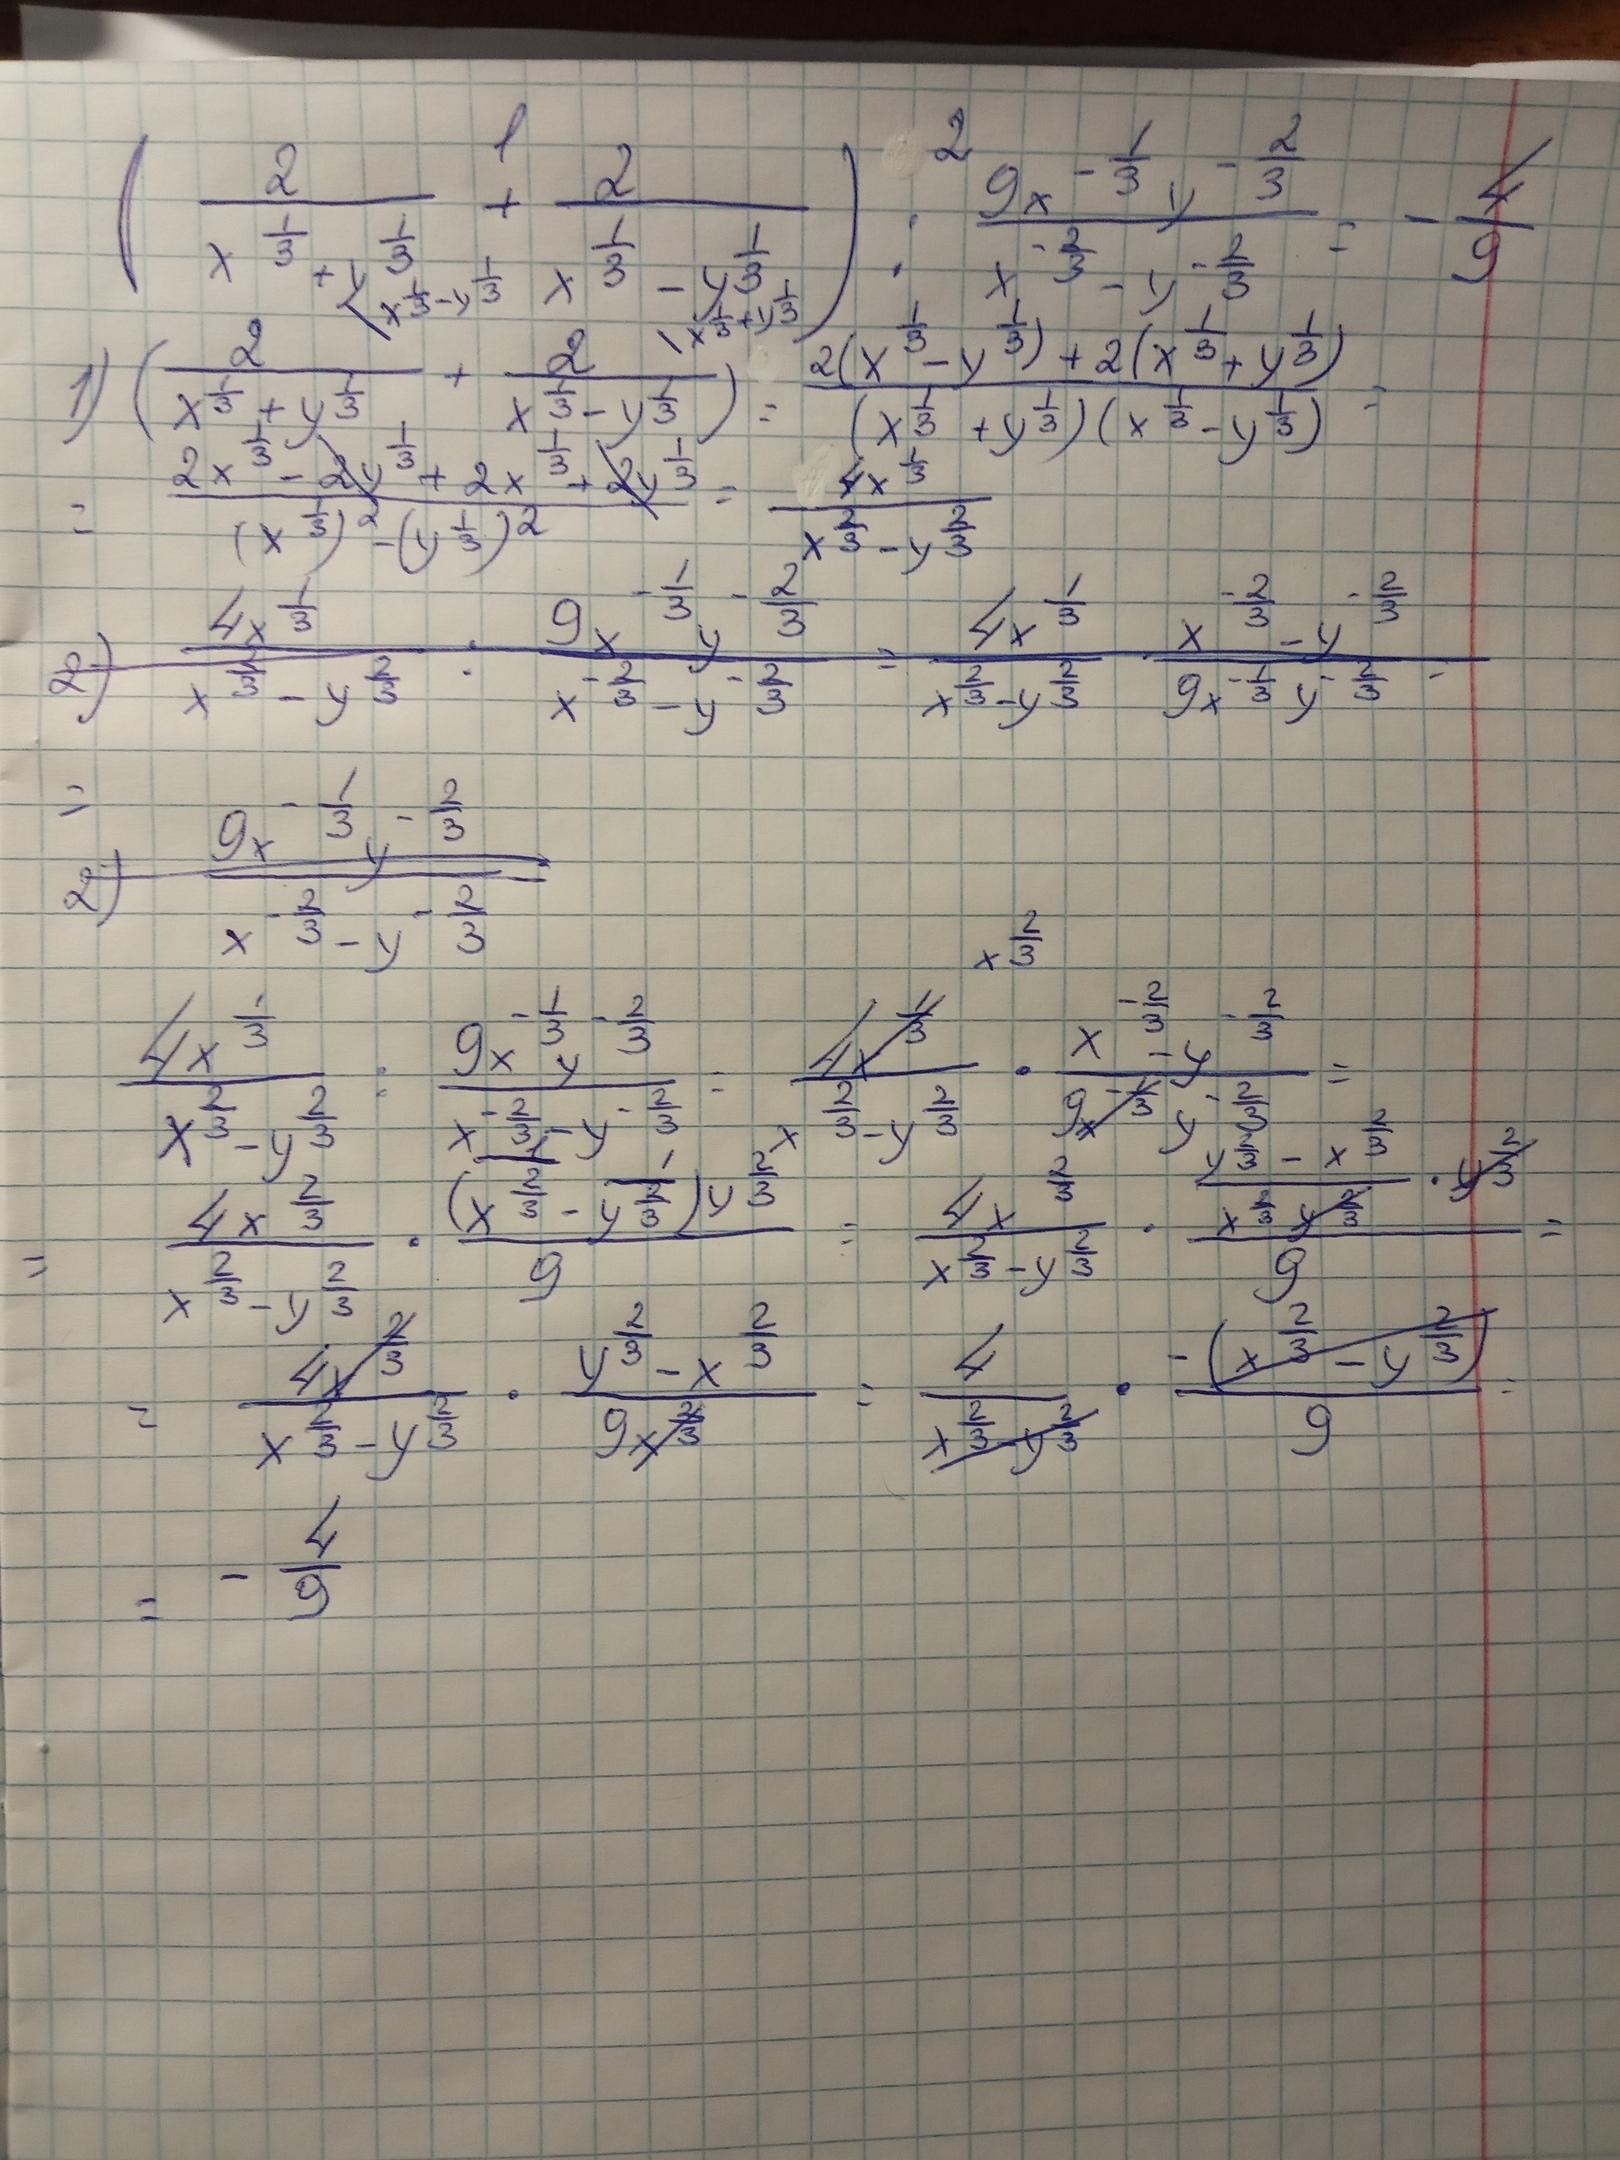 ( 2/(x^(1/3) + y^(1/3)) + 2/(x^(1/3) - y^(1/3)) ) : (9x^(-1/3) y^(-2/3))/(x^(-2/3) - y^(-2/3)) = -4/9
1) ( 2/(x^(1/3) + y^(1/3)) + 2/(x^(1/3) - y^(1/3)) ) = (2(x^(1/3) - y^(1/3)) + 2(x^(1/3) + y^(1/3)))/((x^(1/3) + y^(1/3))(x^(1/3) - y^(1/3))) =
= (2x^(1/3) - 2y^(1/3) + 2x^(1/3) + 2y^(1/3))/((x^(1/3))^2 - (y^(1/3))^2) = 4x^(1/3)/(x^(2/3) - y^(2/3))
2) 4x^(1/3)/(x^(2/3) - y^(2/3)) : (9x^(-1/3) y^(-2/3))/(x^(-2/3) - y^(-2/3)) = 4x^(1/3)/(x^(2/3) - y^(2/3)) · (x^(-2/3) - y^(-2/3))/(9x^(-1/3) y^(-2/3)) =
=
2) (9x^(-1/3) y^(-2/3))/(x^(-2/3) - y^(-2/3)) =
x^(2/3)
4x^(1/3)/(x^(2/3) - y^(2/3)) : (9x^(-1/3) y^(-2/3))/(x^(-2/3) - y^(-2/3)) = 4x^(1/3)/(x^(2/3) - y^(2/3)) · (x^(-2/3) - y^(-2/3))/(9x^(-1/3) y^(-2/3)) =
= 4x^(2/3)/(x^(2/3) - y^(2/3)) · ((1/x^(2/3) - 1/y^(2/3)) y^(2/3))/9 = 4x^(2/3)/(x^(2/3) - y^(2/3)) · ((y^(2/3) - x^(2/3))/(x^(2/3) y^(2/3)) · y^(2/3))/9 =
= 4x^(2/3)/(x^(2/3) - y^(2/3)) · (y^(2/3) - x^(2/3))/(9x^(2/3)) = 4/(x^(2/3) - y^(2/3)) · (-(x^(2/3) - y^(2/3)))/9 =
= -4/9